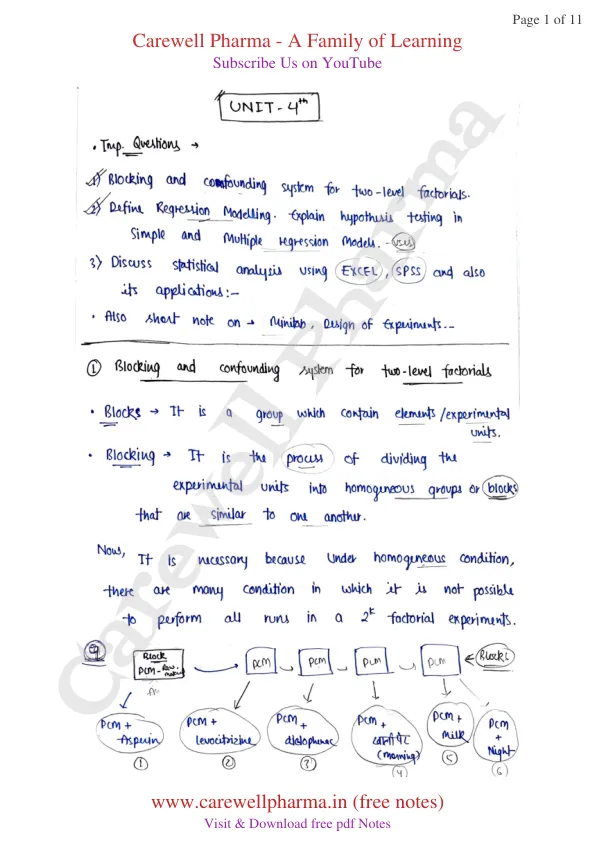 Page 1 of 11
Carewell Pharma - A Family of Learning
Subscribe Us on YouTube
UNIT - 4th
• Imp. Questions →
1) Blocking and confounding system for two-level factorials.
2) Define Regression Modelling. Explain hypothesis testing in
Simple and Multiple regression Models. -
3) Discuss statistical analysis using EXCEL, SPSS and also
its applications:-
• Also short note on → Minitab, Design of Experiments.--
① Blocking and confounding system for two-level factorials
• Blocks → It is a group which contain elements/experimental
units.
• Blocking → It is the process of dividing the
experimental units into homogeneous groups or blocks
that are similar to one another.
Now, It is necessary because under homogeneous condition,
there are many condition in which it is not possible
to perform all runs in a 2^k factorial experiments.
eg Block
PCM - Raw. PCM PCM PCM PCM ← Blocks
PCM + Asperin
PCM + levocitrizine
PCM + diclophenac
PCM + खालीपेट (morning)
PCM + Milk
PCM + Night
① ② ③ (4) ⑤ (6)
Carewell Pharma
www.carewellpharma.in (free notes)
Visit & Download free pdf Notes